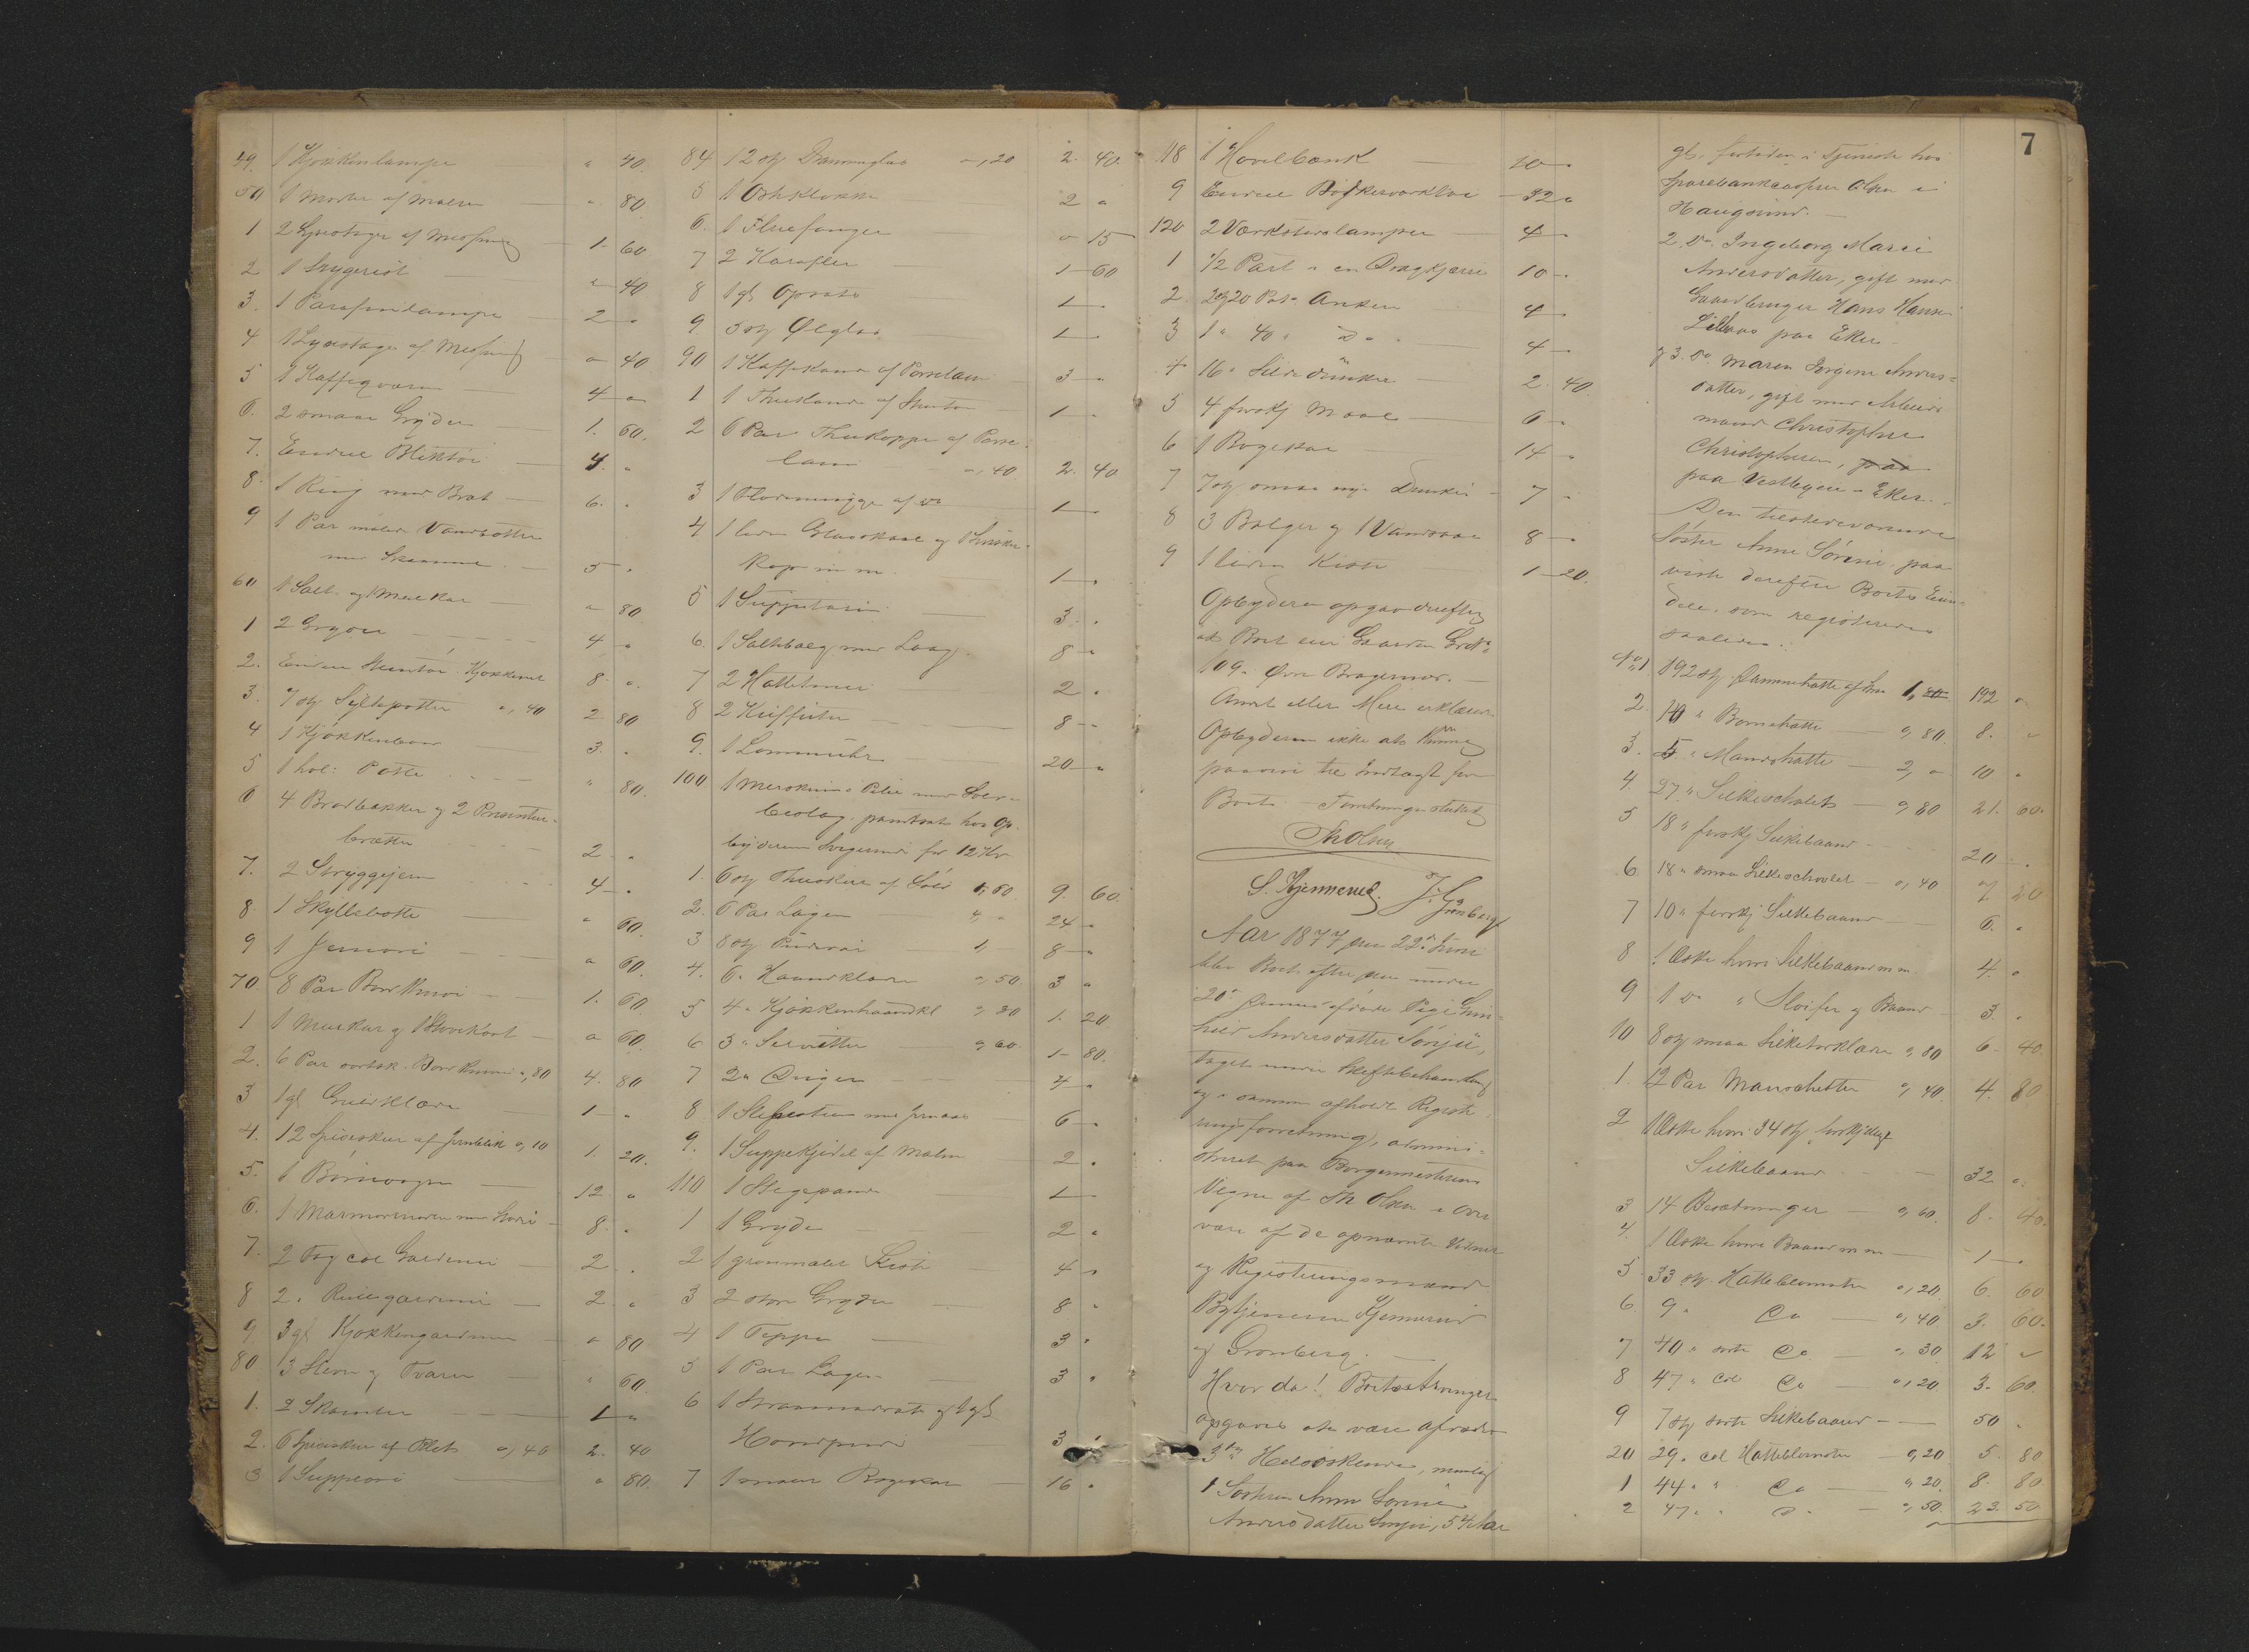 49. 1 Kjøkkenlampe " 40.
50 1 Morter af Malm " 80
1 2 Lysestager af Messing 1- 60
2 1 Lysgerist " 40
3. 1 Parafinlampe 2 "
4 1 Lysestage af Messing " 40
5 1 Kaffeqværn 4 "
6. 2 smaae Gryder 1. 60.
7. Endeel Bliktøi 4. "
8. 1 Ring med Brat 6. "
9 1 Par malede Vandbøtter
med Skamme. 5 "
60 1 Salt- og Meelkar " 80
1 2 Gryder 4 "
2. Endeel Steentøi Kjøkkenet 8 "
3. 7 st Syltepotter ", 40 2 80
4 1 Kjøkkenbord 3. "
5 1 hol: Potte " 80.
6 4 Brødbakker og 2 Presenteer-
brætter 2 "
7. 2 Strygejern 4 "
8. 1 Skyllebøtte " 60.
9 1 " 60.
70. 8 Par Bordknive 1. 60.
1 1 " 60.
2. 6 Par sortsk. Bordknive ", 80 4. 80
3 1 gl Gulvklæde 1 "
4. 12 Spiseskeer af Jernblik ", 10 1. 20.
5. 1 Børnevogn 12 "
6. 1 8. "
7. 2 Fag col Gardiner 2 "
8 2 " Rullegardiner 2 "
9 3 gl Kjøkkengardiner " 80
80 3 " 60.
1. 2 Skamler 1 "
2. 6 Spiseskeer af Plet ", 40 2. 40
3 1 Suppeøse " 80.
84 12 st Dramsglas ", 20 2. 40.
5 1 Osteklokke 2 "
6. 1 Fluefanger " 15
7 2 Karafler 1 60
8 1 gl Opsats 1
9 3 st Ølglas 1
90 1 Kaffekande af Porcelæn 3 "
1 1 Theekande af Steentøi 1 "
2 6 Par Theekopper af Porce-
læn ", 40 2. 40
3 1 Flødemugge af do 1
4 1 liden Glasskaal og 1
Kop m m 1 "
5 1 Suppeterin 3. "
6. 1 Saltbalg med Laag 8 "
7 2 2 "
8 2 Kufferter 8 "
9. 1 Lommeuhr 20 "
100. 1 Merskums Pibe med Sølv-
beslag. pantsat hos Op-
byderens for 12 Kr
1. 6 st Theeskeer af Sølv 1, 60 9. 60.
2. 6 Par Lagen 4, " 24 "
3 8 st Pudevar 1, 8 "
4. 6 " Haandklæder ", 50 3 "
5 4 " Kjøkkenhaandkl ", 30 1. 20
6 3 " Servietter ", 60 1. 80.
7 2 " Duger 4 "
8 1 6 "
9. 1 Suppekjedel af Malm 2 "
110 1 Stegepande 1
1 1 Gryde 2 "
2 1 grønmalet Kiste 4 "
3 2 store Gryder 8 "
4 1 Teppe 3 "
5 1 Par Lagen 3 "
6 1 Straamadrats og 1 gl
Hovedpude 3 "
7 1 malet Bøgekar 16 "
118 1 Høvelbænk 20 "
9 Endeel Bødkerværktøi 32 "
120 2 Værkstedslamper 4
1 1/2 Part i en Dragkjærre 10 "
2. 2 st 20 Pots Anker 4
3 1 " 40 " do 4
4 16 " Sildedunke 2. 40
5 4 forskj Maal 6
6 1 Bøgekar 14 "
7 7 st smaa nye Dunker 7 "
8 3 Balger og 1 Vandsaae 8 "
9 1 liden Kiste 1 20.
Opbyderen opgav derefter
at Boet eier Gaarden Grd No
109. Øvre Bragernæs.
Andet eller Mere erklærede
Opbyderen ikke at kunne
paavise til Indtægt for
Boet. Forretningen sluttet
Th Olsen
S. Kjemerud. J. Grønberg
Aar 1877 den 22de Juni
blev Boet efter den under
20de afdøde Pige Gun-
hild Andersdatter Sørjii,
taget under Skiftebehandling
og i samme afholdt Registe-
ringsforretning, admini-
streret paa Borgermesterens
Vegne af Th Olsen i Over
være af de opnævnte Vidner
og Registreringsmænd
Bytjenerne Kjemerud
og Grønberg.
Hvor da! Boets Arvinger
opgaves at være afdødes
3de Helsøskende, nemlig
1 Søsteren Anne Sørine
Andersdatter, 54 Aar
7
gl. fortiden i Tjeneste hos
Sparebankcasserer Olsen i
Haugsund.
2. do. Ingeborg Marie
Andersdatter, gift med
Gaardbruger Hans Hansen
paa Eker
og 3. do. Maren Jørgine Anders-
datter, gift med Arbeids
mand Christopher
Christophersen, paa
paa Vestbyen - Eker.
Den tilstedeværende
Søster Anne Sørine paa
viste derefter Boets Eien-
dele, som registreredes
saaledes:
No 1 192 st Damehatte af 1, 192 "
2. 10 " Børnehatte ", 80. 8. "
3. 5 " Mandshatte 2, " 10 "
4. 27 " Silkeschalets ", 80 21. 60.
5 18 " forskj Silkebaand 20 "
6. 18 " smaa Silkeschaler ", 40 7 20
7 10 " forskj Silkebaand 6. "
8 1 Æske hvori Silkebaand m m. 4. "
9 1 do " Sløifer og Baand 3. "
10 8 st smaa Silketørklæder ", 80 6. 40.
1. 12 Par Manschetter ", 40. 4. 80
2 1 Æske hvori 34 st forskjelligt
Silkebaand 32 "
3 14 Besætninger ", 60. 8. 40.
4. 1 Æske hvori Baand m m 1
5 33 st Hatteblomster ", 20 6. 60
6. 9 " Do ", 40 3. 60.
7 40 " sorte Do ", 30 12 "
8 47 " col Do ", 20. 3. 60.
9 7 st sorte Silkebaand 50 "
20 29 " col Hatteblomster ", 20 5. 80
1 44 " " Do ", 20. 8. 80
2 47 " " Do ", 50. 23. 50